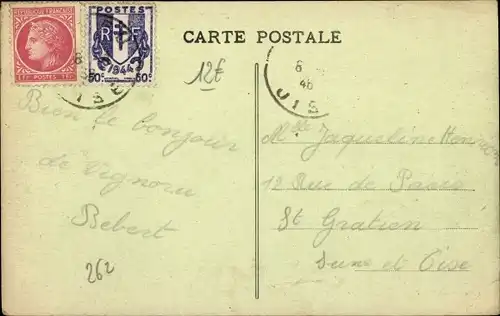 REPUBLIQUE FRANÇAISE
1F POSTES 1F
POSTES
RF
1944
50c 50c
CARTE POSTALE
12f
6
46
OISE
Bien le bonjour
de Vignory
Bebert
262
Mlle Jaqueline
12 Rue de Paris
St Gratien
Seine et Oise